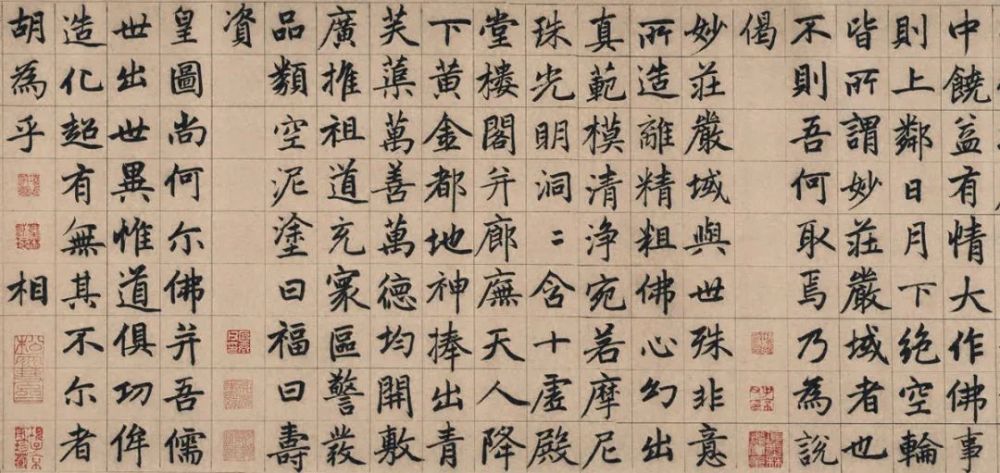 中饒益有情大作佛事
則上鄰日月下絶空輪
皆所謂妙莊嚴域者也
不則吾何取焉乃為說
偈
妙莊嚴域與世殊非意
所造離精粗佛心幻出
真範模清净宛若摩尼
珠光明洞〻含十虛殿
堂樓閣并廊廡天人降
下黃金都地神捧出青
芙蕖萬善萬德均開敷
廣推祖道充寰區警發
品類空泥塗曰福曰壽
資
皇圖尚何尔佛并吾儒
世出世異惟道俱功侔
造化超有無其不尔者
胡為乎 相